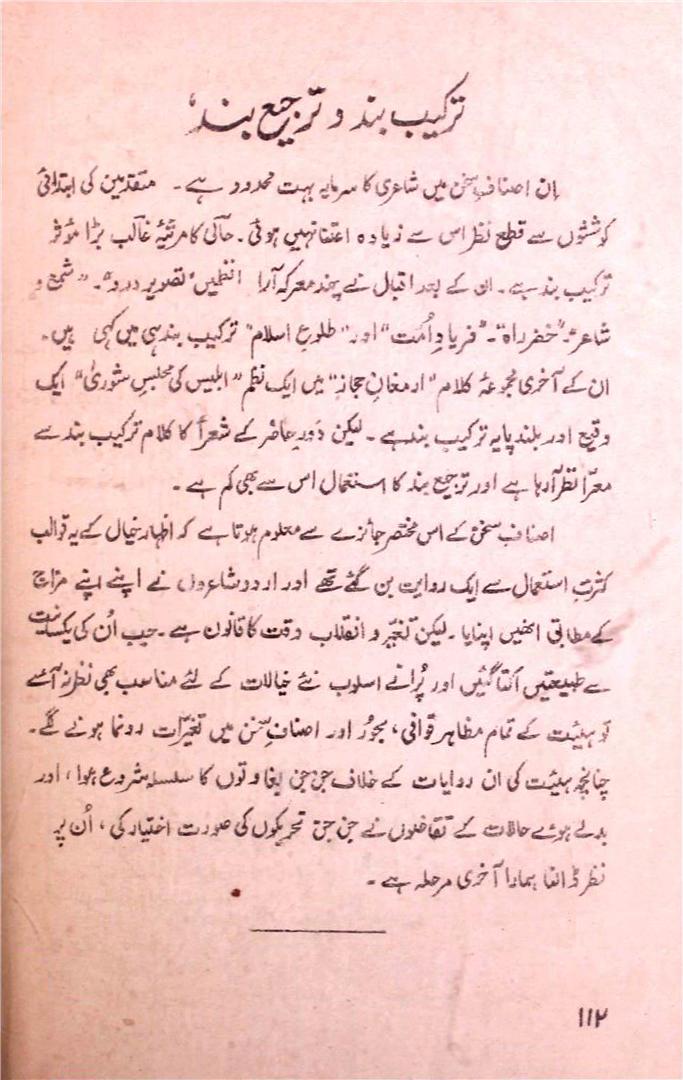 ترکیب بند و ترجیع بند،
اِن اصنافِ سخن میں شاعری کا سرمایہ بہت محدود ہے ۔ متقدمین کی ابتدائی
کوششوں سے قطع نظر اس سے زیادہ اعتنا نہیں ہوئی ۔ حالی کا مرثیۂ غالب بڑا مؤثر
ترکیب بند ہے ۔ ان کے بعد اقبال نے چند معرکہ آرا نظمیں "تصویرِ درد" ۔ "شمع و
شاعر" ۔ "خضر راہ" ۔ "فریادِ اُمت" اور "طلوعِ اسلام" ترکیب بند ہی میں کہی ہیں ۔
ان کے آخری مجموعۂ کلام "ارمغانِ حجاز" میں ایک نظم "ابلیس کی مجلسِ شوریٰ" ایک
وقیع اور بلند پایہ ترکیب بند ہے ۔ لیکن دَورِ حاضر کے شعرأ کا کلام ترکیب بند سے
معرّا نظر آ رہا ہے اور ترجیع بند کا استعمال اس سے بھی کم ہے ۔
اصنافِ سخن کے اس مختصر جائزے سے معلوم ہوتا ہے کہ اظہارِ خیال کے یہ قوالب
کثرتِ استعمال سے ایک روایت بن گئے تھے اور اردو شاعروں نے اپنے اپنے مزاج
کے مطابق انھیں اپنایا ۔ لیکن تغیّر و انقلاب وقت کا قانون ہے ۔ جب اُن کی یکسانیت
سے طبیعتیں اُکتا گئیں اور پُرانے اسلوب نئے خیالات کے لئے مناسب بھی نظر نہ آئے
تو ہیئت کے تمام مظاہر قوافی، بحُور اور اصنافِ سخن میں تغیّرات رونما ہونے لگے ۔
چنانچہ ہیئت کی ان روایات کے خلاف جن جن بغاوتوں کا سلسلہ شروع ہوا، اور
بدلے ہوئے حالات کے تقاضوں نے جن جن تحریکوں کی صورت اختیار کی، اُن پر
نظر ڈالنا ہمارا آخری مرحلہ ہے ۔
۱۱۲